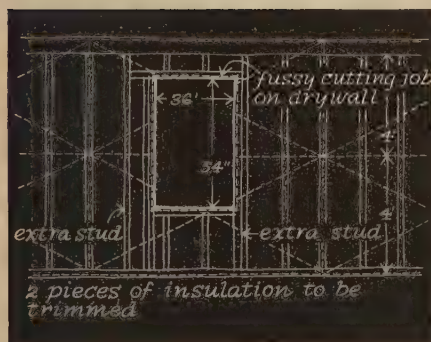 fussy cutting job
on drywall
36"
54"
4'
4'
extra stud
extra stud
2 pieces of insulation to be
trimmed